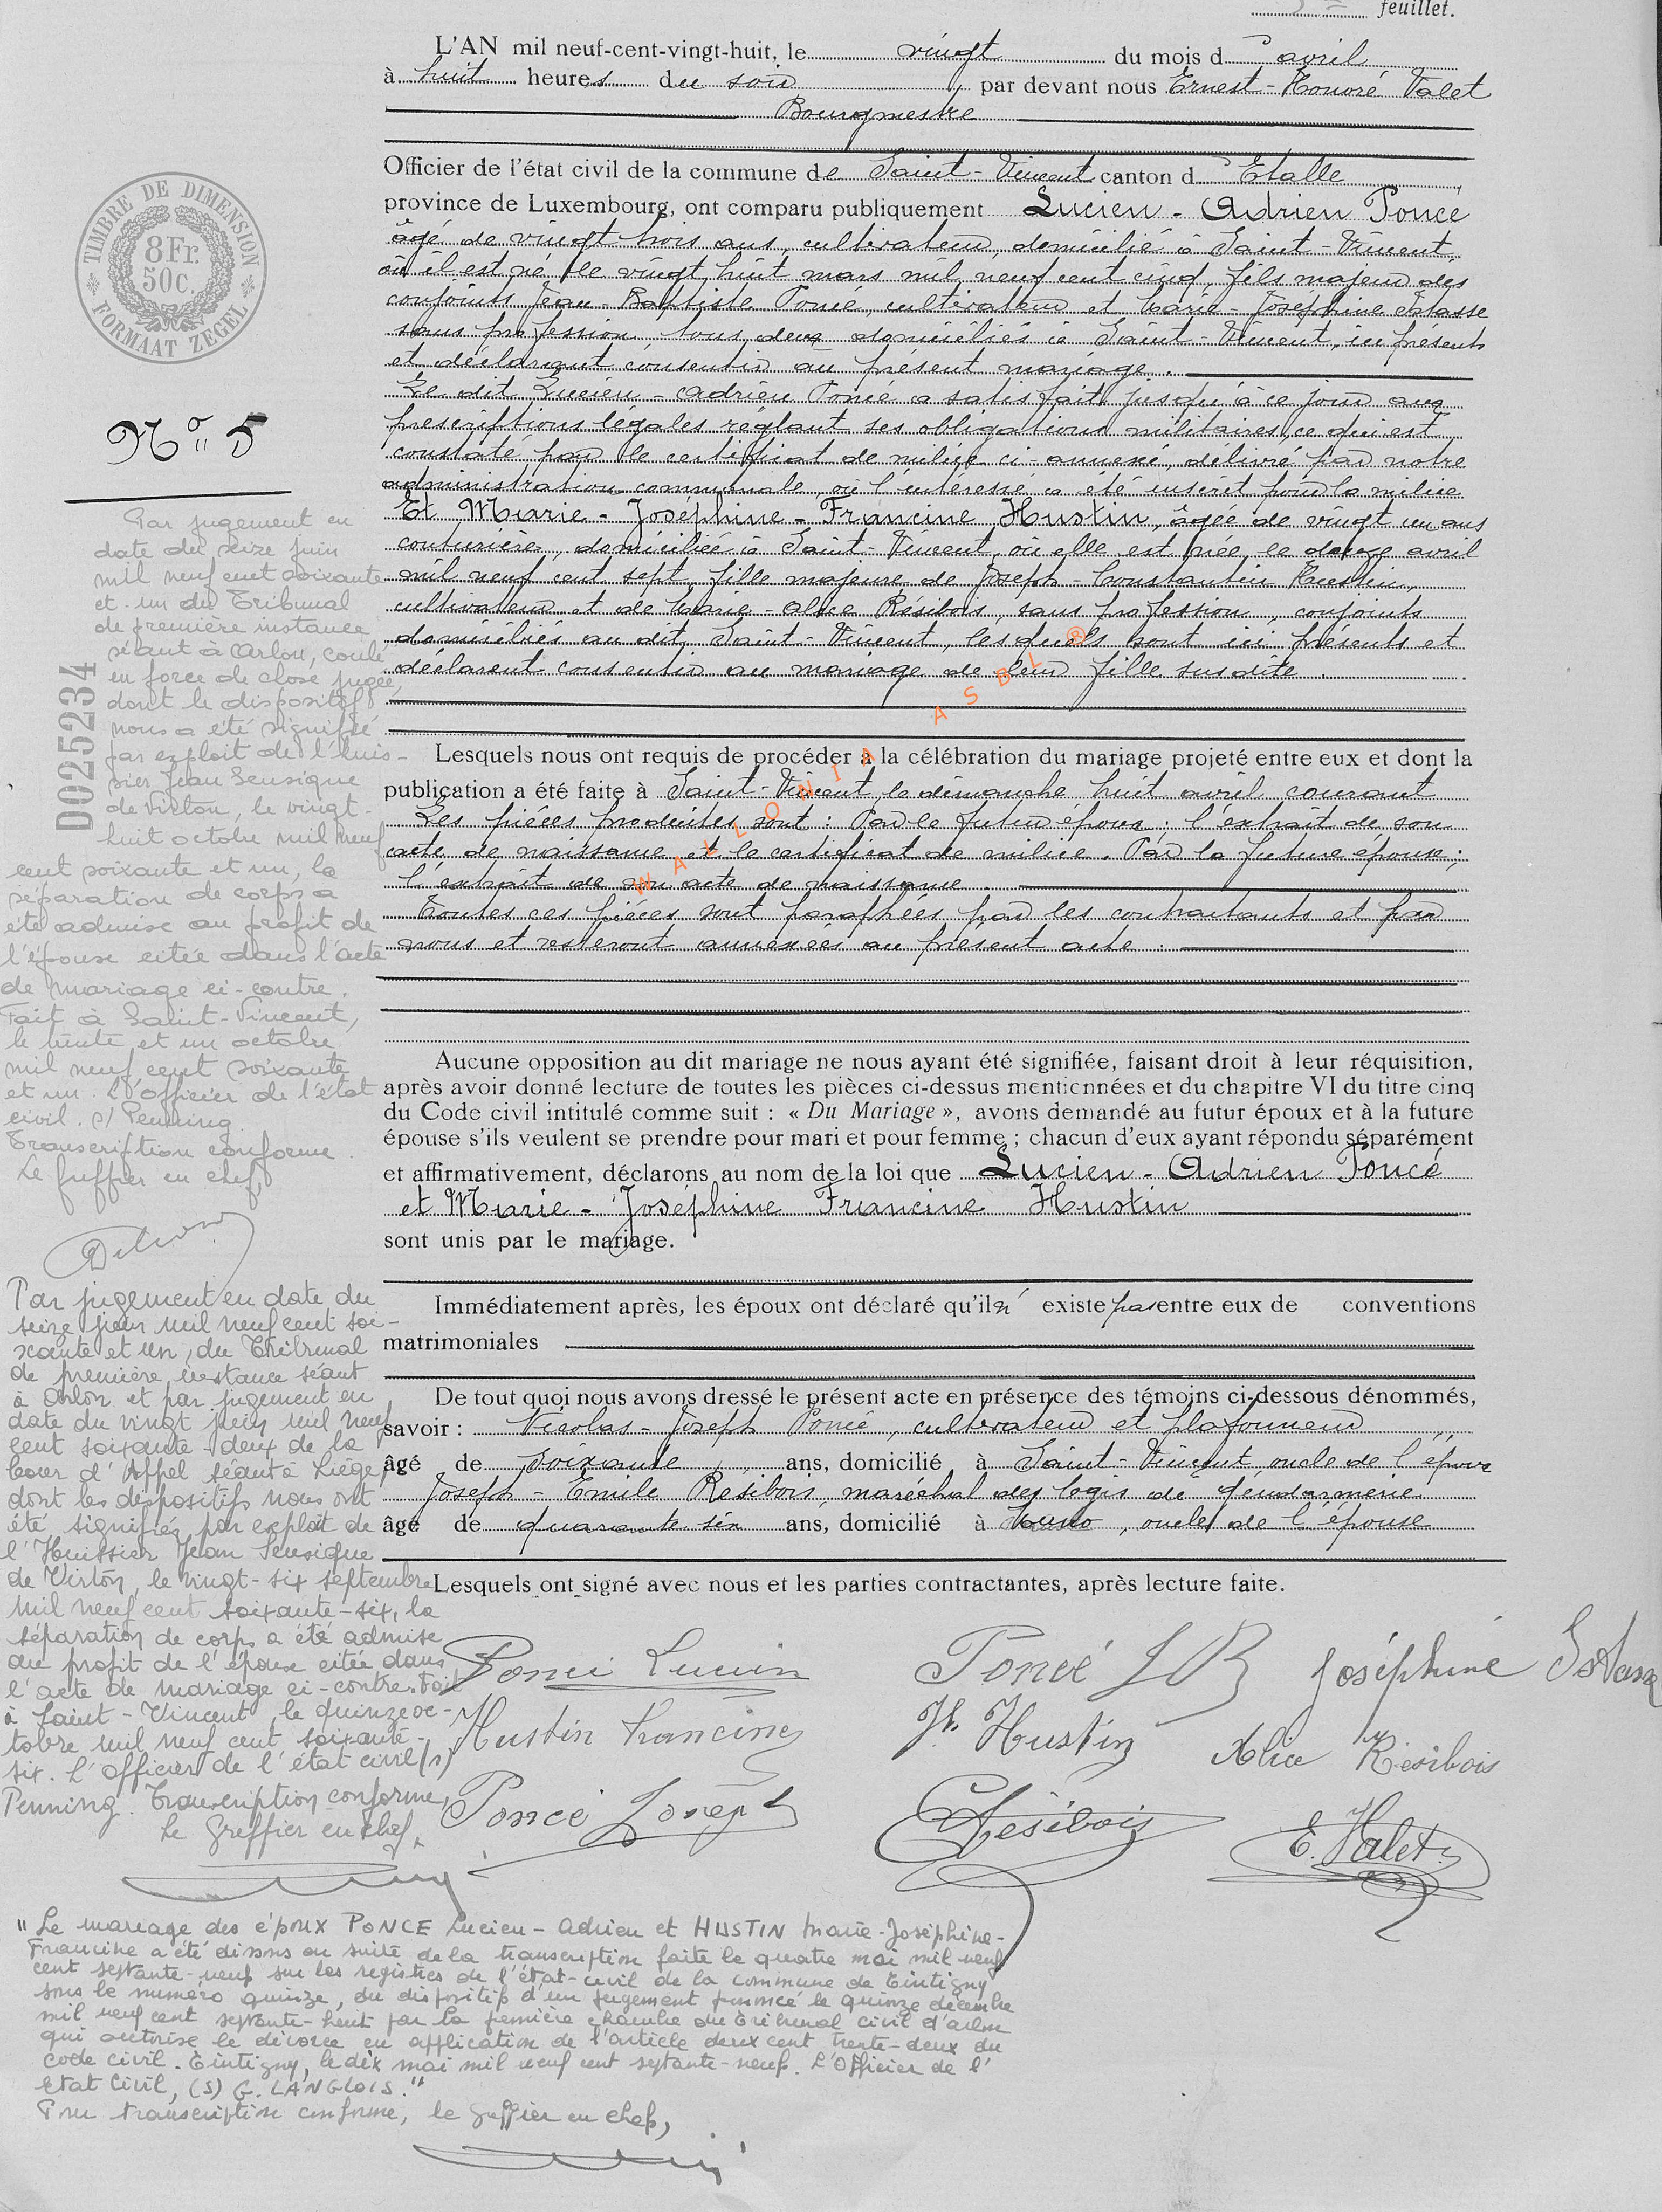 feuillet.
L'AN mil neuf-cent-vingt-huit, le vingt du mois d'avril
à huit heures du soir par devant nous Ernest-Honoré Valet
Bourgmestre
Officier de l'état civil de la commune de Saint-Vincent canton d'Etalle
province de Luxembourg, ont comparu publiquement Lucien-Adrien Poncé
âgé de vingt trois ans, cultivateur, domicilié à Saint-Vincent,
où il est né le vingt huit mars mil neuf cent cinq, fils majeur des
conjoints Jean-Baptiste Poncé, cultivateur et Marie-Joséphine
sans profession, tous deux domiciliés à Saint-Vincent, ici présents
et déclarant consentir au présent mariage.
Le dit Lucien-Adrien Poncé a satisfait jusqu'à ce jour aux
prescriptions légales réglant ses obligations militaires, ce qui est
constaté par le certificat de milice ci-annexé, délivré par notre
administration communale, où l'intéressé a été inscrit pour la milice
Et Marie-Joséphine-Francine Hustin, âgée de vingt un ans
couturière, domiciliée à Saint-Vincent, où elle est née, le douze avril
mil neuf cent sept, fille majeure de Joseph-Constantin Hustin,
cultivateur et de Marie-Alice Résibois, sans profession, conjoints
domiciliés au dit Saint-Vincent, lesquels sont ici présents et
déclarent consentir au mariage de leur fille susdite.
Lesquels nous ont requis de procéder à la célébration du mariage projeté entre eux et dont la
publication a été faite à Saint-Vincent, le dimanche huit avril courant
Les pièces produites sont : Par le futur époux : l'extrait de son
acte de naissance et le certificat de milice. Par la future épouse :
l'extrait de son acte de naissance.
Toutes ces pièces sont paraphées par les contractants et par
nous et resteront annexées au présent acte.
Aucune opposition au dit mariage ne nous ayant été signifiée, faisant droit à leur réquisition,
après avoir donné lecture de toutes les pièces ci-dessus mentionnées et du chapitre VI du titre cinq
du Code civil intitulé comme suit : « Du Mariage », avons demandé au futur époux et à la future
épouse s'ils veulent se prendre pour mari et pour femme ; chacun d'eux ayant répondu séparément
et affirmativement, déclarons au nom de la loi que Lucien-Adrien Poncé
et Marie-Joséphine Francine Hustin
sont unis par le mariage.
Immédiatement après, les époux ont déclaré qu'il n'existe pas entre eux de conventions
matrimoniales
De tout quoi nous avons dressé le présent acte en présence des témoins ci-dessous dénommés,
savoir : Nicolas-Joseph Poncé, cultivateur et plafonneur
âgé de soixante ans, domicilié à Saint-Vincent, oncle de l'époux
Joseph-Emile Résibois, maréchal des logis de gendarmerie
âgé de quarante six ans, domicilié à , oncle de l'épouse
Lesquels ont signé avec nous et les parties contractantes, après lecture faite.
Poncé Lucien
Poncé JB
Joséphine
Hustin Francine
Jh Hustin
Alice Résibois
Poncé Joseph
Résibois
E. Valet
TIMBRE DE DIMENSION
8Fr.
50c.
FORMAAT ZEGEL
No 5
D025234
Par jugement en
date du seize juin
mil neuf cent soixante
et un du Tribunal
de première instance
séant à Arlon, coulé
en force de chose jugée,
dont le dispositif
nous a été signifié
par exploit de l'huis-
sier Jean Sensique
de Virton, le vingt-
huit octobre mil neuf
cent soixante et un, la
séparation de corps a
été admise au profit de
l'épouse citée dans l'acte
de mariage ci-contre.
Fait à Saint-Vincent,
le trente et un octobre
mil neuf cent soixante
et un. L'officier de l'état
civil. s/ Penning.
Transcription conforme.
Le greffier en chef,
Par jugement en date du
seize juin mil neuf cent soi-
xante et un, du Tribunal
de première instance séant
à Arlon et par jugement en
date du vingt juin mil neuf
cent soixante-deux de la
Cour d'Appel séant à Liège,
dont les dispositifs nous ont
été signifiés par exploit de
l'Huissier Jean Sensique
de Virton, le vingt-six septembre
mil neuf cent soixante-six, la
séparation de corps a été admise
au profit de l'épouse citée dans
l'acte de mariage ci-contre. Fait
à Saint-Vincent, le quinze oc-
tobre mil neuf cent soixante-
six. L'officier de l'état civil (s)
Penning. Transcription conforme,
Le Greffier en chef,
"Le mariage des époux PONCE Lucien-Adrien et HUSTIN Marie-Joséphine-
Francine a été dissous en suite de la transcription faite le quatre mai mil neuf
cent septante-neuf sur les registres de l'état-civil de la commune de Tintigny
sous le numéro quinze, du dispositif d'un jugement prononcé le quinze décembre
mil neuf cent septante-huit par la première chambre du Tribunal civil d'Arlon
qui autorise le divorce en application de l'article deux cent trente-deux du
code civil. Tintigny, le dix mai mil neuf cent septante-neuf. L'Officier de l'
Etat Civil, (S) G. LANGLOIS."
Pour transcription conforme, le greffier en chef,
WALLONIA ASBL ®